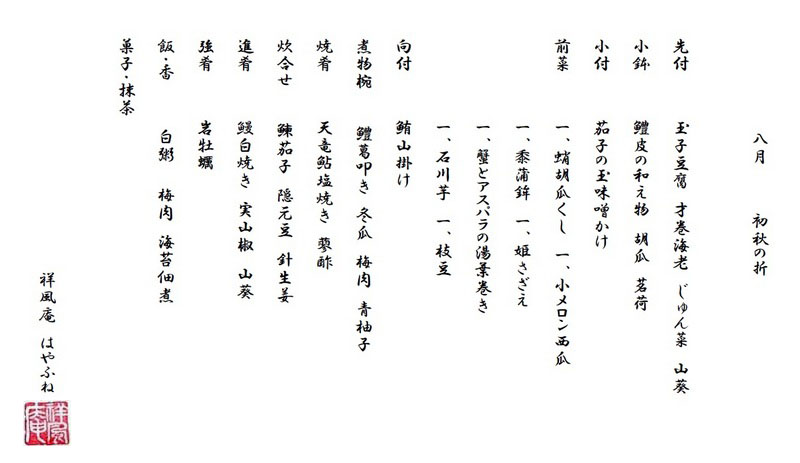 八月　初秋の折
先付　玉子豆腐　才巻海老　じゅん菜　山葵
小鉢　鱧皮の和え物　胡瓜　茗荷
小付　茄子の玉味噌かけ
前菜　一、蛸胡瓜くし　一、小メロン西瓜
一、黍蒲鉾　一、姫さざえ
一、蟹とアスパラの湯葉巻き
一、石川芋　一、枝豆
向付　鮪山掛け
煮物椀　鱧葛叩き　冬瓜　梅肉　青柚子
焼肴　天竜鮎塩焼き　蓼酢
炊合せ　鰊茄子　隠元豆　針生姜
進肴　鰻白焼き　実山椒　山葵
強肴　岩牡蠣
飯・香　白粥　梅肉　海苔佃煮
菓子・抹茶
祥風庵　はやふね
祥風庵